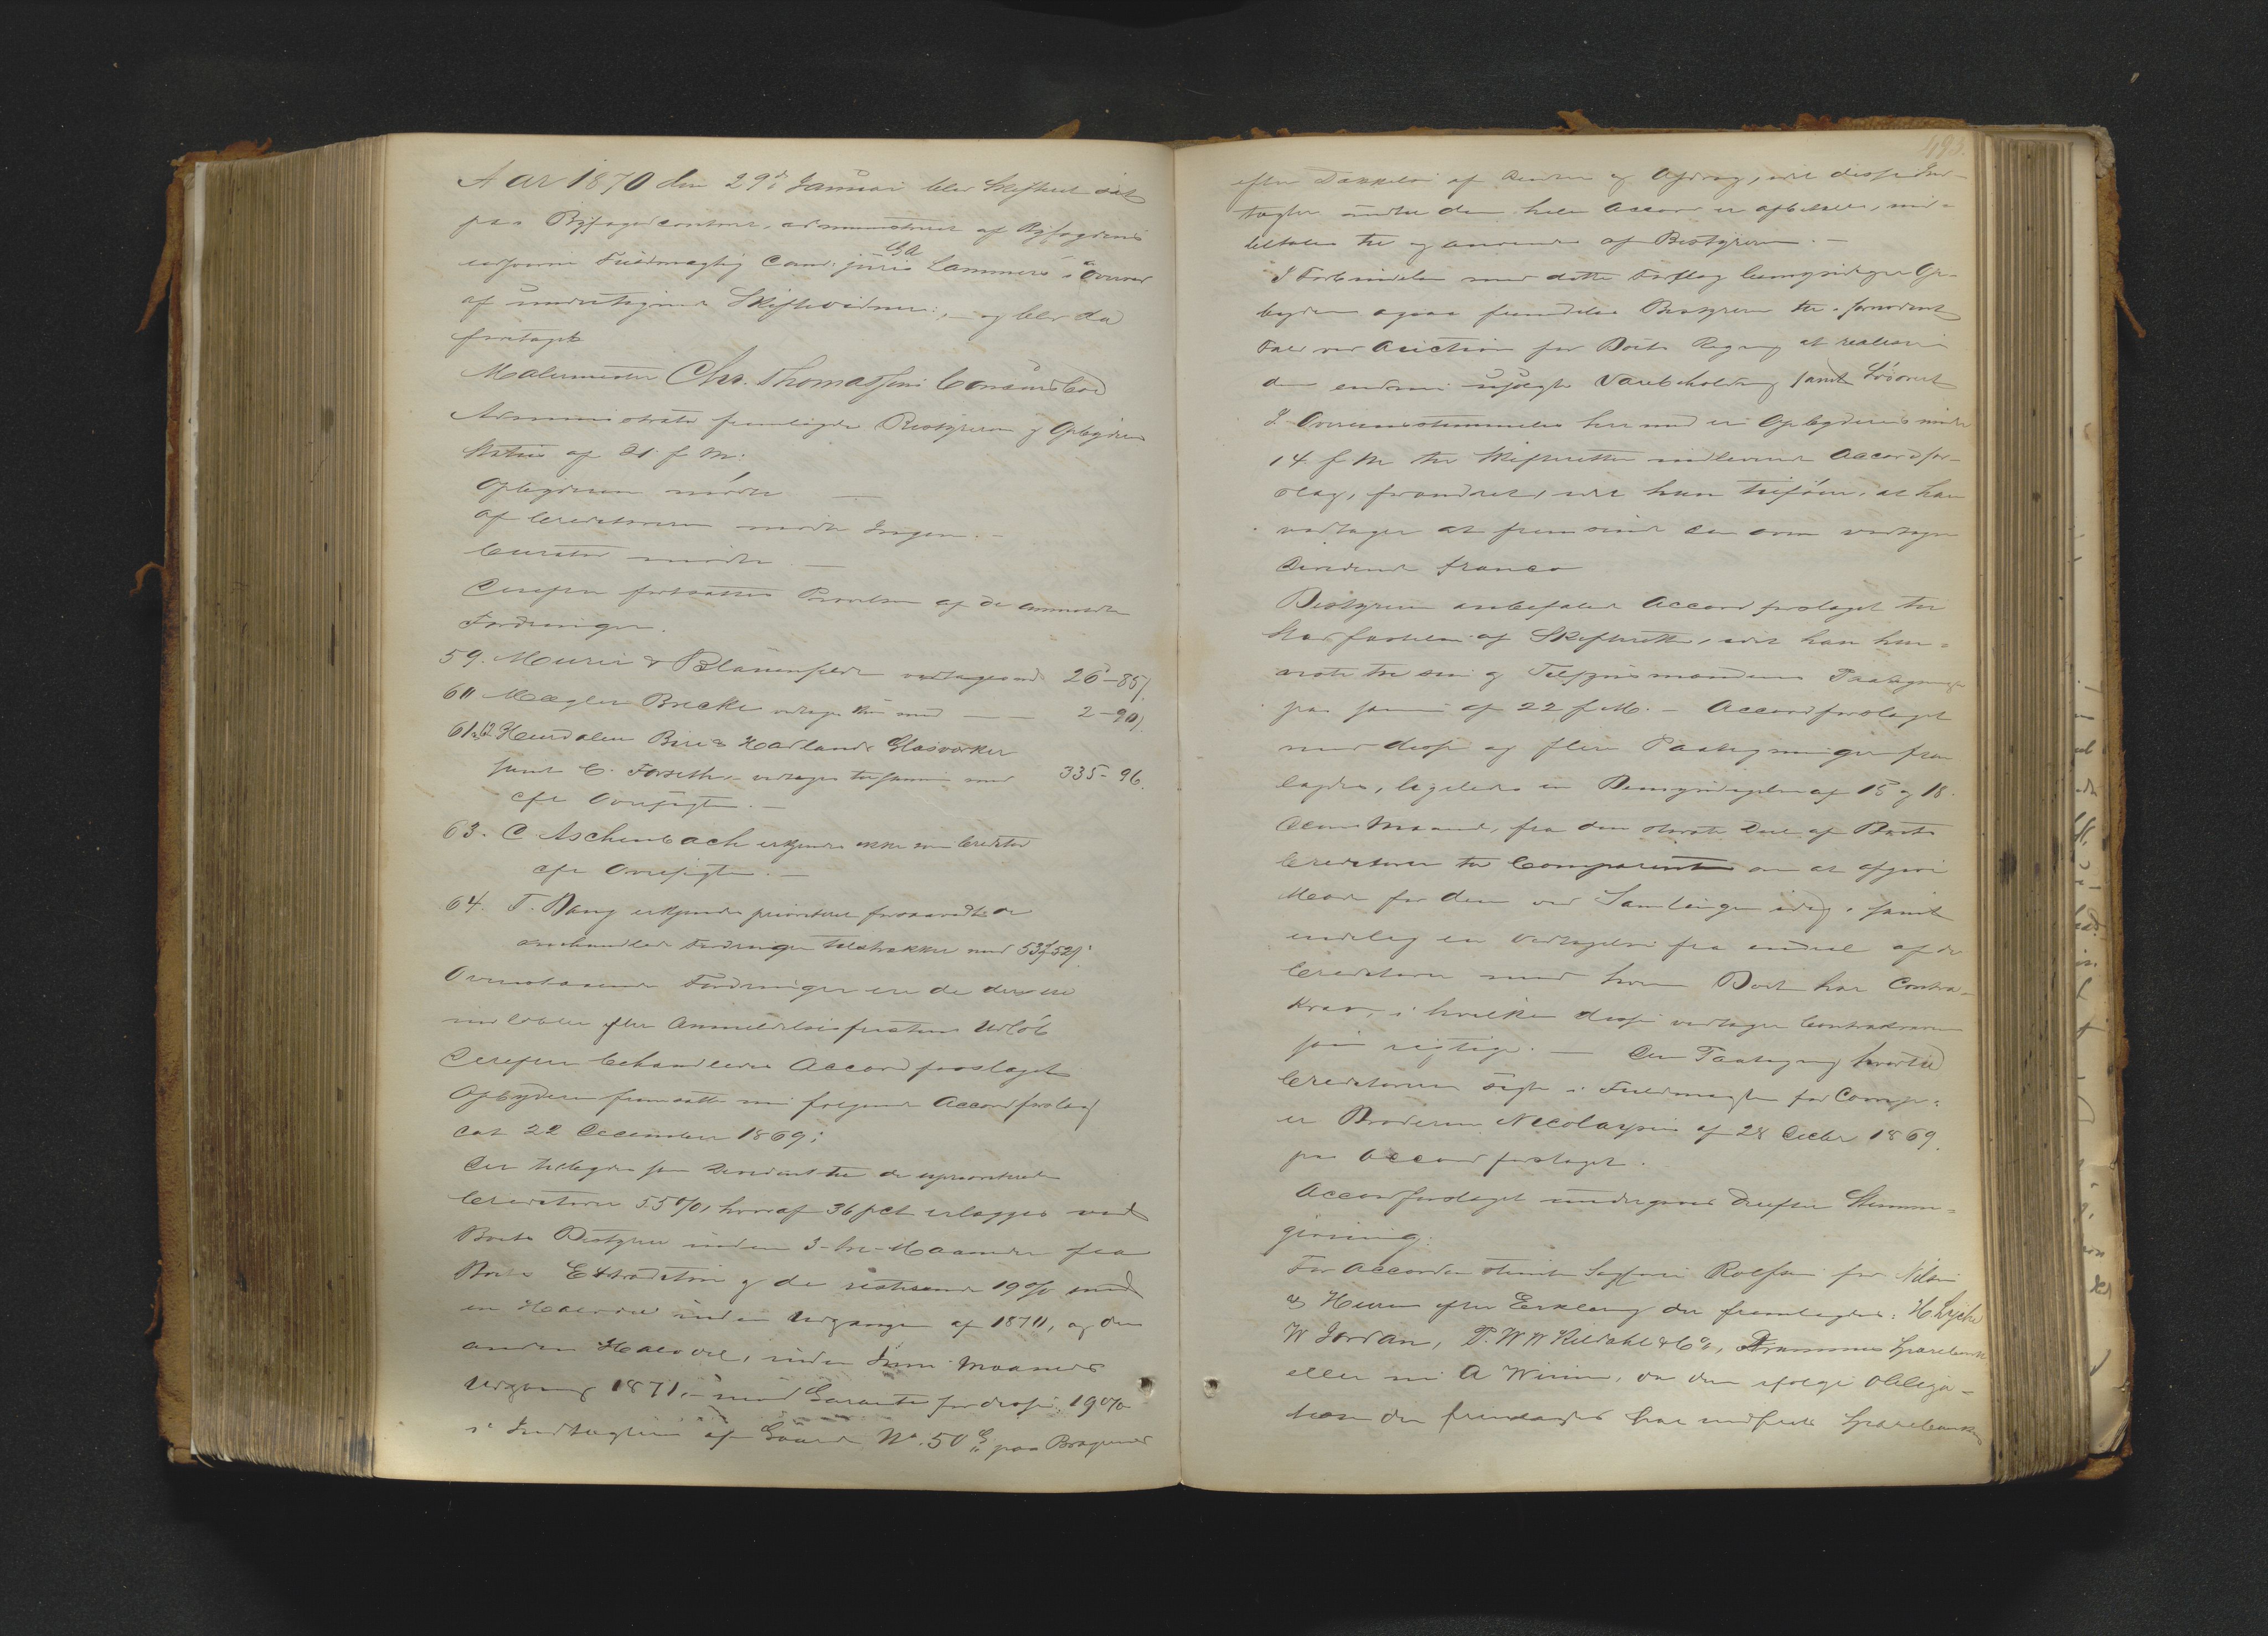 Aar 1870 den 29de Januar blev Skifteret sat
paa Byfogedcontoret, administreret af Byfogdens
edsvorne Fuldmægtig Cand: juris Lammers i Overvær
af undertegnede Skiftevidner:, og blev da
foretaget
Malermester Chr. Thomassens Concursbo
Administrator fremlagde Bestyrerens og Opbyderens
Status af 21 f. M:
Opbyderen mødte —
Af Creditorerne mødte Ingen. —
Curator mødte —
Derefter fortsattes Prøvelsen af de anmeldte
Fordringer.
59. Meurer & Blauenfeldt vedtages med 26-85/
60 Mægler Brecke vedtages med — — 2-90/
61. 62 Hurdalen Biri & Hadlands Glasværker
samt C. Forseth, vedtages tilsammen med 335-96.
cfr Oversigten. —
63. C Aschenbach erkjendes ikke som Creditor
cfr Oversigten. —
64. T. Bang erkjendes prioriteret forsaavidt de
omhandlede Fordringer tilstrækker med 53 52/
Ovenstaaende Fordringer ere de der ere
indløbne efter Anmeldelsesfristens Udløb
Derefter behandledes Accordforslaget
Opbyderen fremsatte nu følgende Accordforslag
dat 22 December 1869:
Der tillægges som Dividende til de uprioriterede
Creditorer 55%, hvoraf 36 pCt erlægges ved
Boets Bestyrer inden 3-tre-Maaneder fra
Boets Extradition og de resterende 19% med
en Halvdel inden Udgangen af 1870, og den
anden Halvdel, inden Juni Maaneds
Udgang 1871, — mod Garantie for disse 19%
i Indtægterne af Gaard No. 50 paa Bragernes
493.
efter Dækkelse af Renter og Afdrag, idet disse Ind-
tægter indtil den hele Accord er afbetalt, ind-
betales til og anvendes af Bestyreren. —
I Forbindelse med dette Forslag bemyndiger Op-
byderen ogsaa fremdeles Bestyreren til i fornødent
Fald ved Auction for Boets Regning at realisere
den endnu usolgte Varebeholdning samt Løsøret
I Overensstemmelse her med er Opbyderens under
14 f M til Skifteretten indleverede Accordfor-
slag, forandret, idet han tilføier, at han
vedtager at fremsende den som vedtagne
Dividende franco
Bestyreren anbefaler Accordforslaget til
Stadfæstelse af Skifteretten, idet han hen-
viste til sin og Tilsynsmandens Paategning
paa samme af 22 f. M. — Accordforslaget
med disse og flere Paategninger frem-
lagdes, ligeledes en Bemyndigelse af 15 og 18
denne Maaned, fra den største Deel af Boets
Creditorer til Comparenten om at afgive
Møde for dem ved Samlingen idag, samt
endelig en Vedtagelse fra endeel af de
Creditorer med hvem Boet har Contra-
krav, i hvilken disse vedtager Contrakravene
som rigtige. — Den Paategning hvortil
Creditorerne sigte i Fuldmagten for Comp:
er Brødrene Nicolaysens af 28 Decbr 1869.
paa Accordforslaget.
Accordforslaget undergaves derefter Stemme-
givning:
For Accorden stemte Sagfører Rolfsen for Nilsen
& Heuer efter Erklæring der fremlagdes: H Lycke
W Jordan, P. W W Kildahl & Co, Drammens Sparebank
eller nu A Wiium, da den ifølge Obliga-
tion der fremlagdes har indfriet Sparebankens